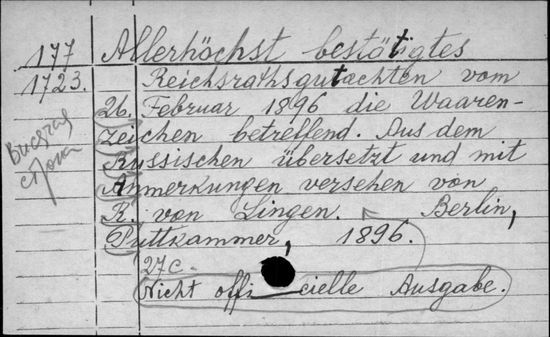 177 Allerhöchst bestätigtes
1723. Reichsrathsgutachten vom
26. Februar 1896 die Waaren-
zeichen betreffend. Aus dem
Russischen übersetzt und mit
Anmerkungen versehen von
R. von Lingen. Berlin,
Puttkammer, 1896.
27 c.
Nicht officielle Ausgabe.